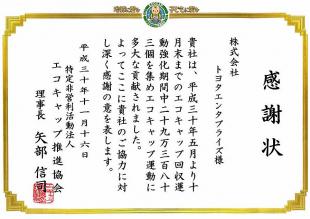 感謝状
株式会社
トヨタエンタプライズ様
貴社は、平成三十年五月より十
月末までのエコキャップ回収運
動強化期間中二十九万三百八十
三個を集めエコキャップ運動に
多大な貢献されました。
よってここに貴社のご協力に対
し深く感謝の意を表します。
平成三十年十一月十六日
特定非営利活動法人
エコキャップ推進協会
理事長 矢部信司